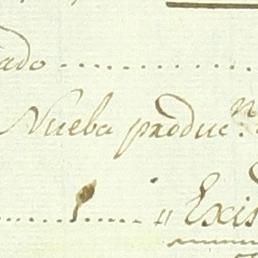 ado
Nueba produc.n
" Exis